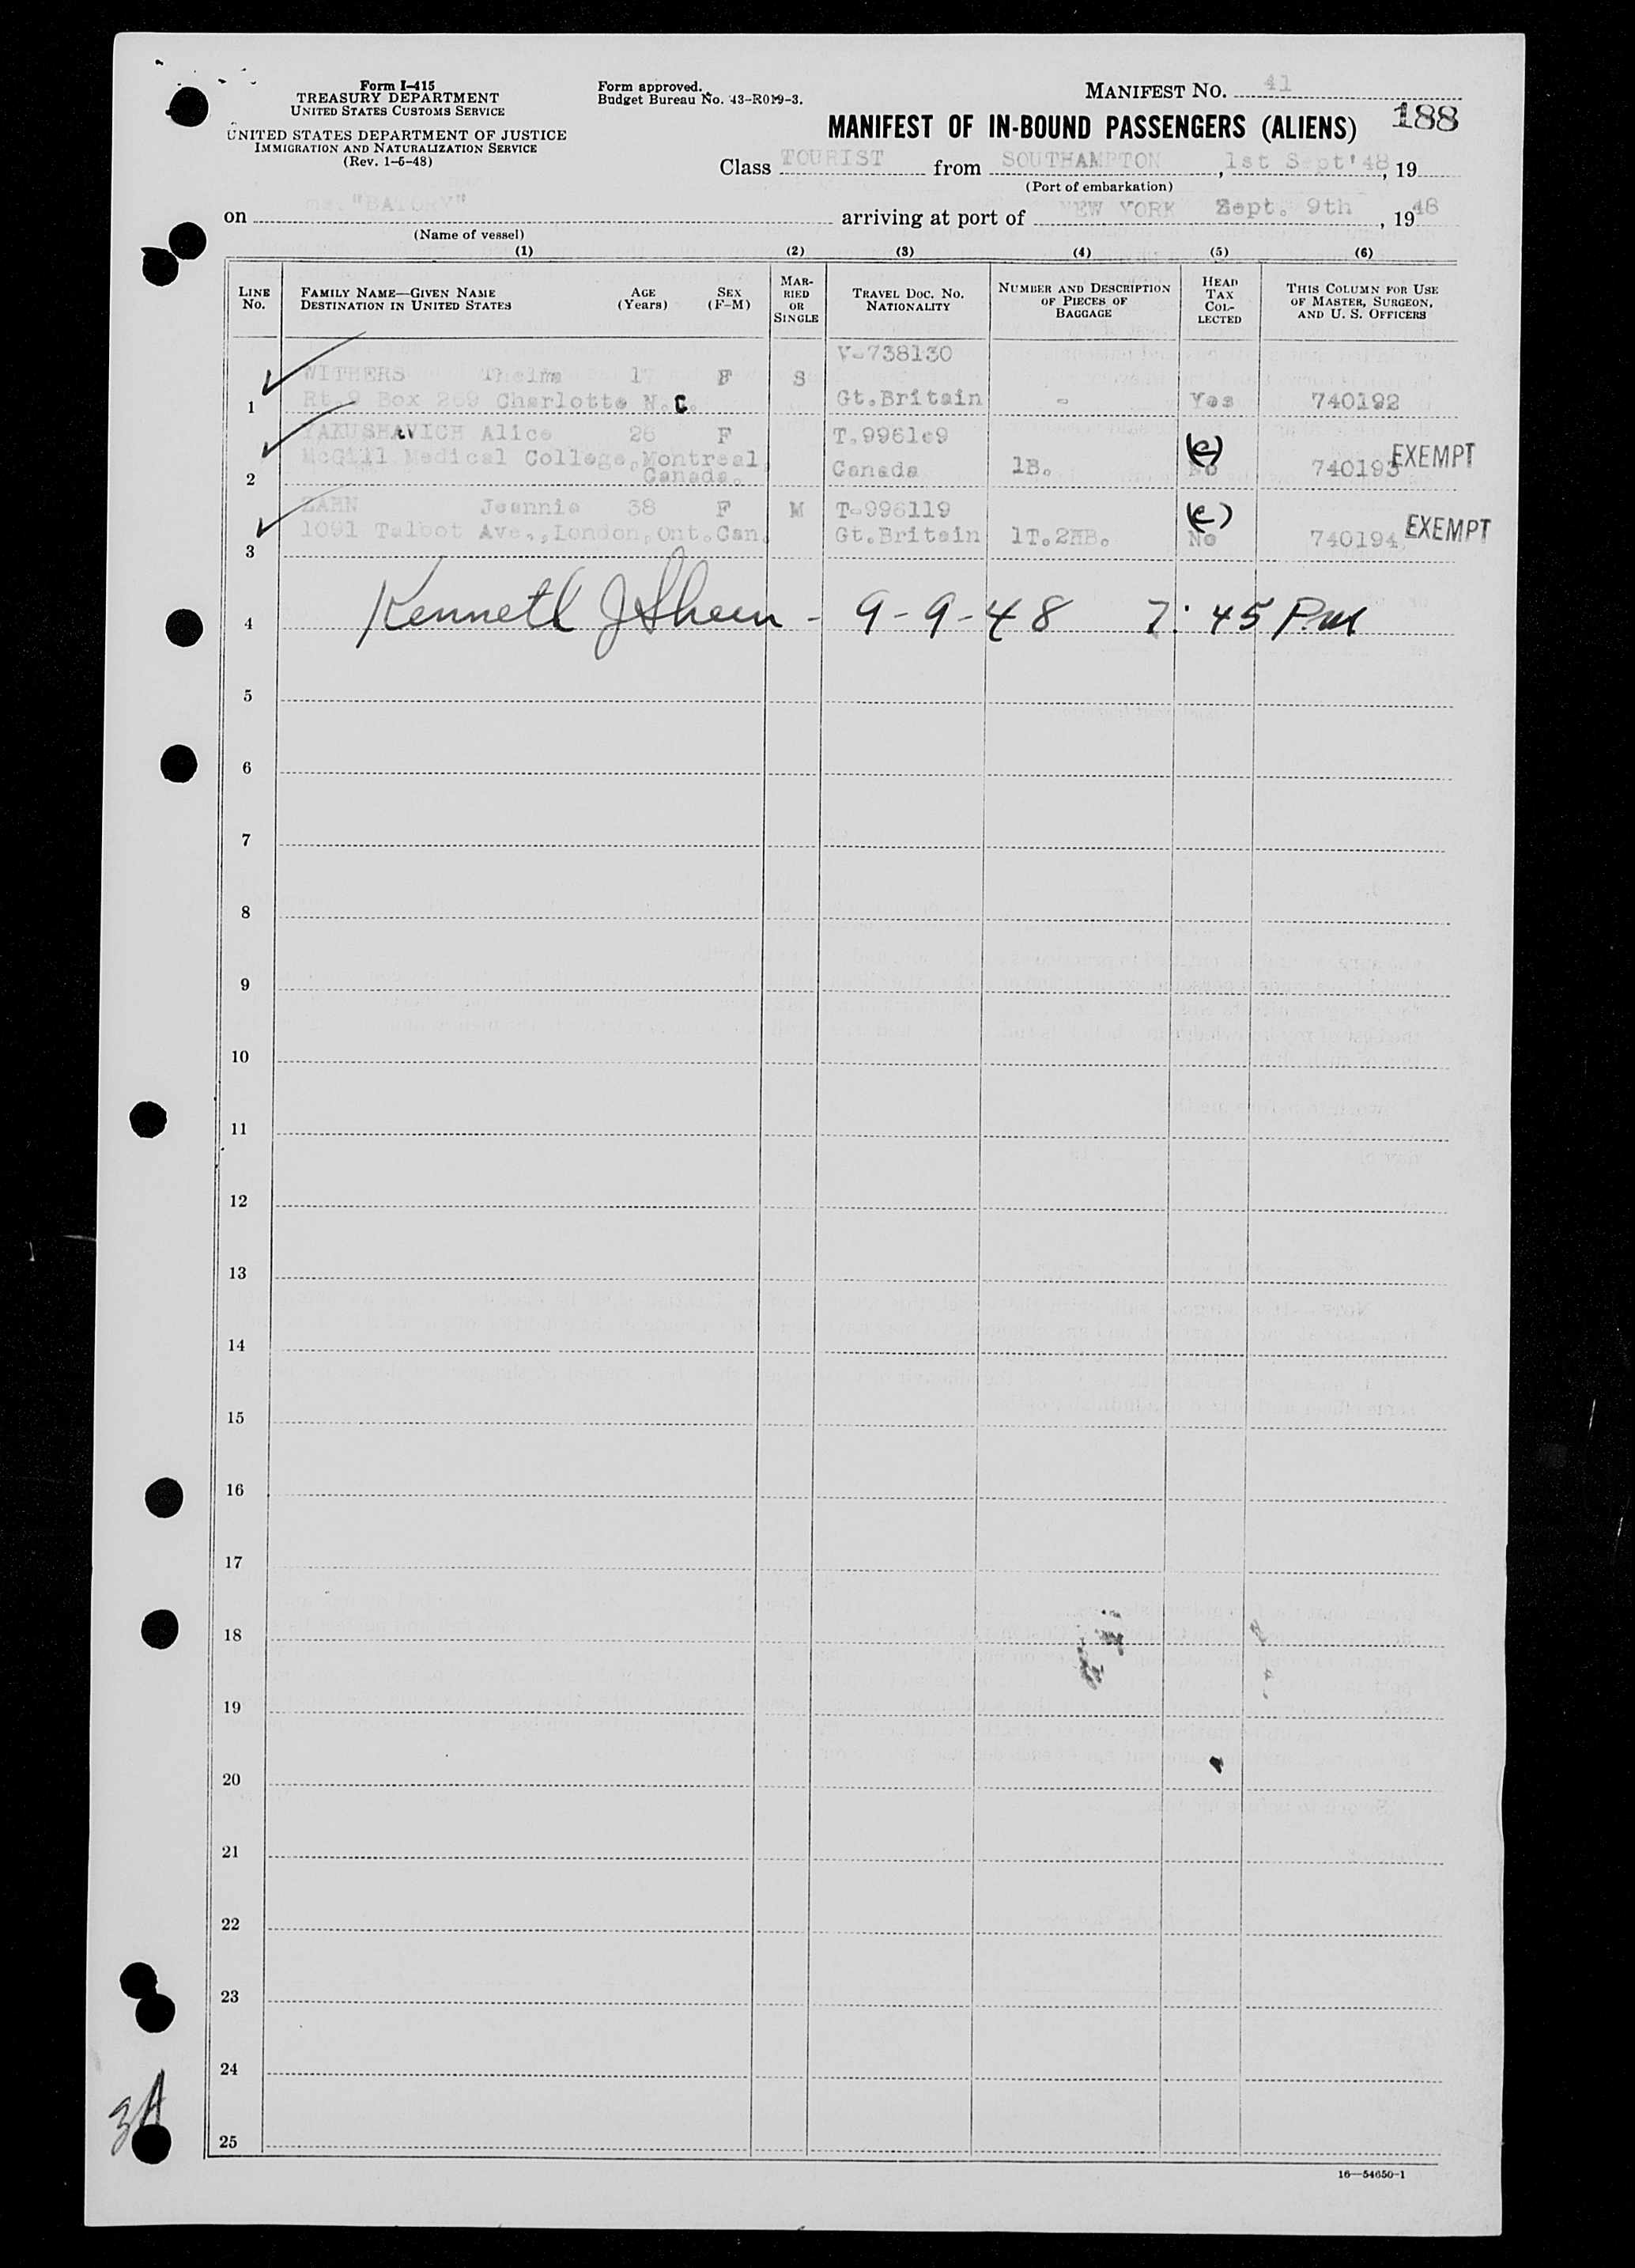 Form I-415
TREASURY DEPARTMENT
UNITED STATES CUSTOMS SERVICE
UNITED STATES DEPARTMENT OF JUSTICE
IMMIGRATION AND NATURALIZATION SERVICE
(Rev. 1-5-48)
Form approved.
Budget Bureau No. 43-R019-3.
MANIFEST NO. 41
188
MANIFEST OF IN-BOUND PASSENGERS (ALIENS)
Class TOURIST from SOUTHAMPTON, 1st Sept'48, 19
(Port of embarkation)
on ms. "BATORY" arriving at port of NEW YORK Sept. 9th, 1948
(Name of vessel)
(1) (2) (3) (4) (5) (6)
LINE No. FAMILY NAME—GIVEN NAME DESTINATION IN UNITED STATES AGE (Years) SEX (F-M) MARRIED OR SINGLE TRAVEL DOC. NO. NATIONALITY NUMBER AND DESCRIPTION OF PIECES OF BAGGAGE HEAD TAX COLLECTED THIS COLUMN FOR USE OF MASTER, SURGEON, AND U. S. OFFICERS
V-738130
WITHERS Thelma 17 F S
1 Rt.9 Box 269 Charlotte N.C. Gt.Britain - Yes 740192
YAKUSHAVICH Alice 26 F T.9961e9 (e)
McGill Medical College, Montreal Canada 1B. No 740193 EXEMPT
2 Canada.
ZAHN Jeannie 38 F M T-996119 (e)
1091 Talbot Ave.,,London,Ont.Can. Gt.Britain 1T.2HB. No 740194 EXEMPT
3
4 Kenneth J Sheen - 9-9-48 7:45 PM
5
6
7
8
9
10
11
12
13
14
15
16
17
18
19
20
21
22
23
24
25
3A
16—54650-1